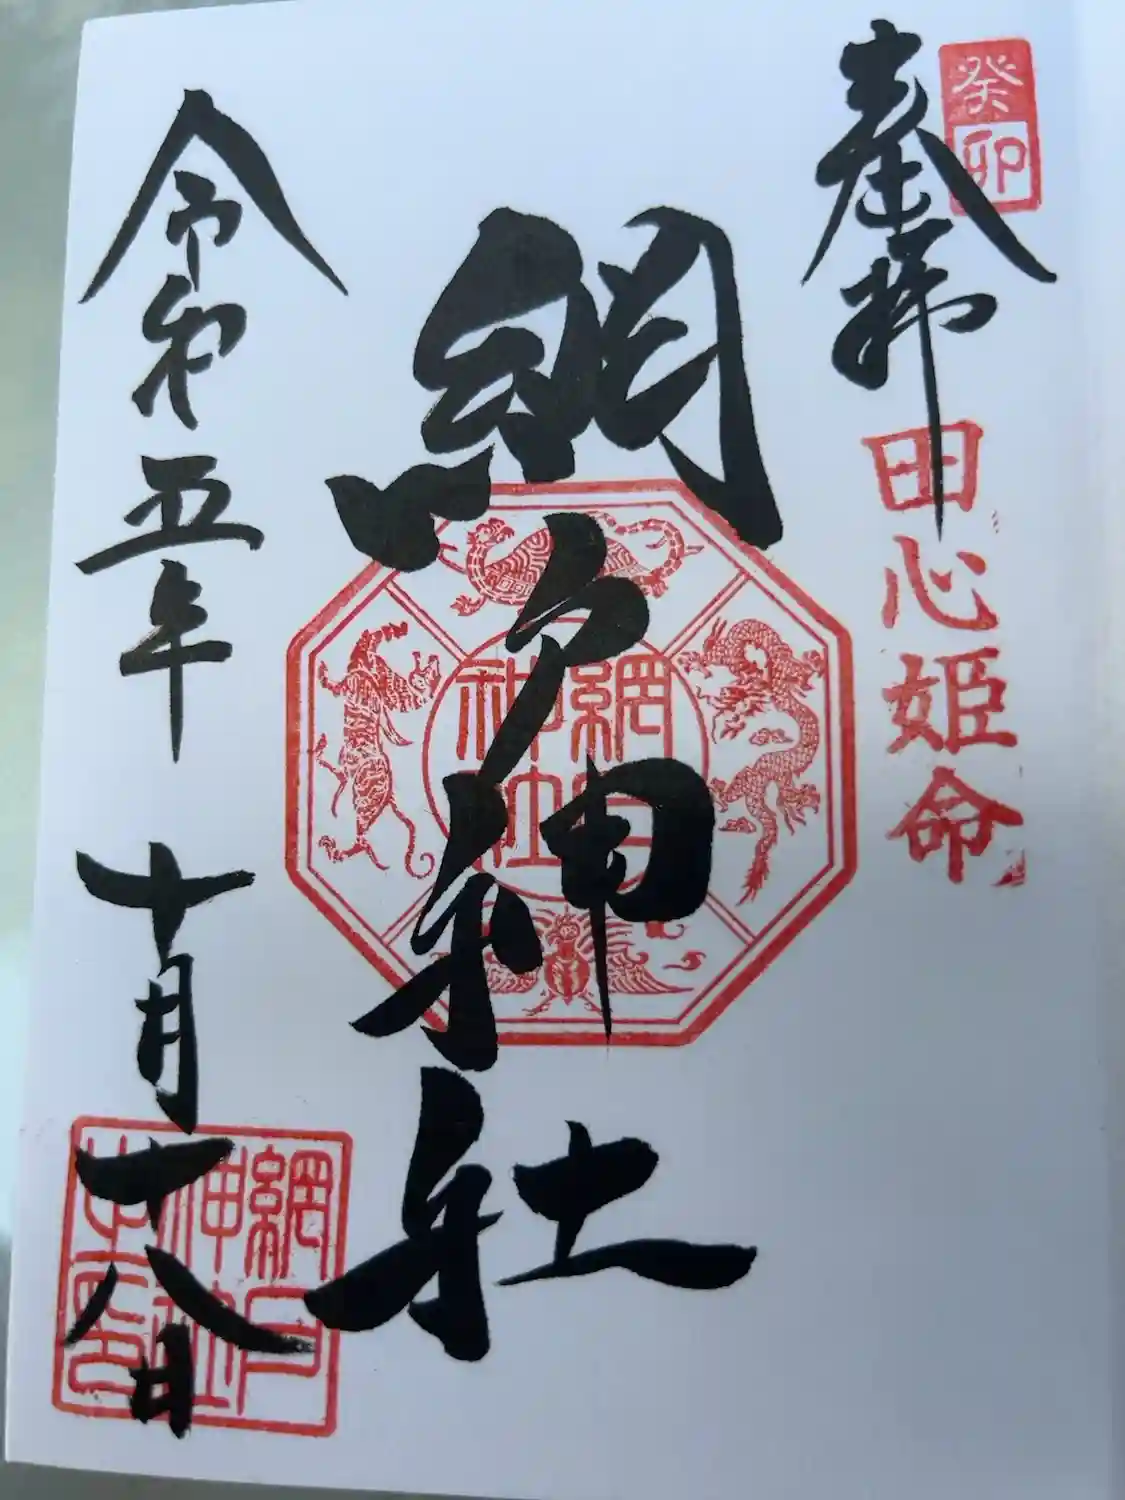 癸卯
奉拝
田心姫命
網戸神社
網戸神社
令和五年 十月十八日
網戸神社